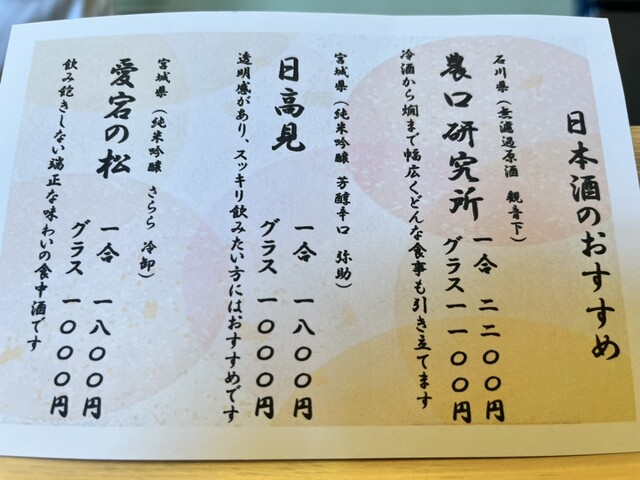 日本酒のおすすめ
石川県(無濾過原酒 観音下)
農口研究所
一合 二二〇〇円
グラス 一一〇〇円
冷酒から燗まで幅広くどんな食事も引き立てます
宮城県(純米吟醸 芳醇辛口 弥助)
日高見
一合 一八〇〇円
グラス 一〇〇〇円
透明感があり、スッキリ飲みたい方にはおすすめです
宮城県(純米吟醸 さらら 冷卸)
愛宕の松
一合 一八〇〇円
グラス 一〇〇〇円
飲み飽きしない端正な味わいの食中酒です